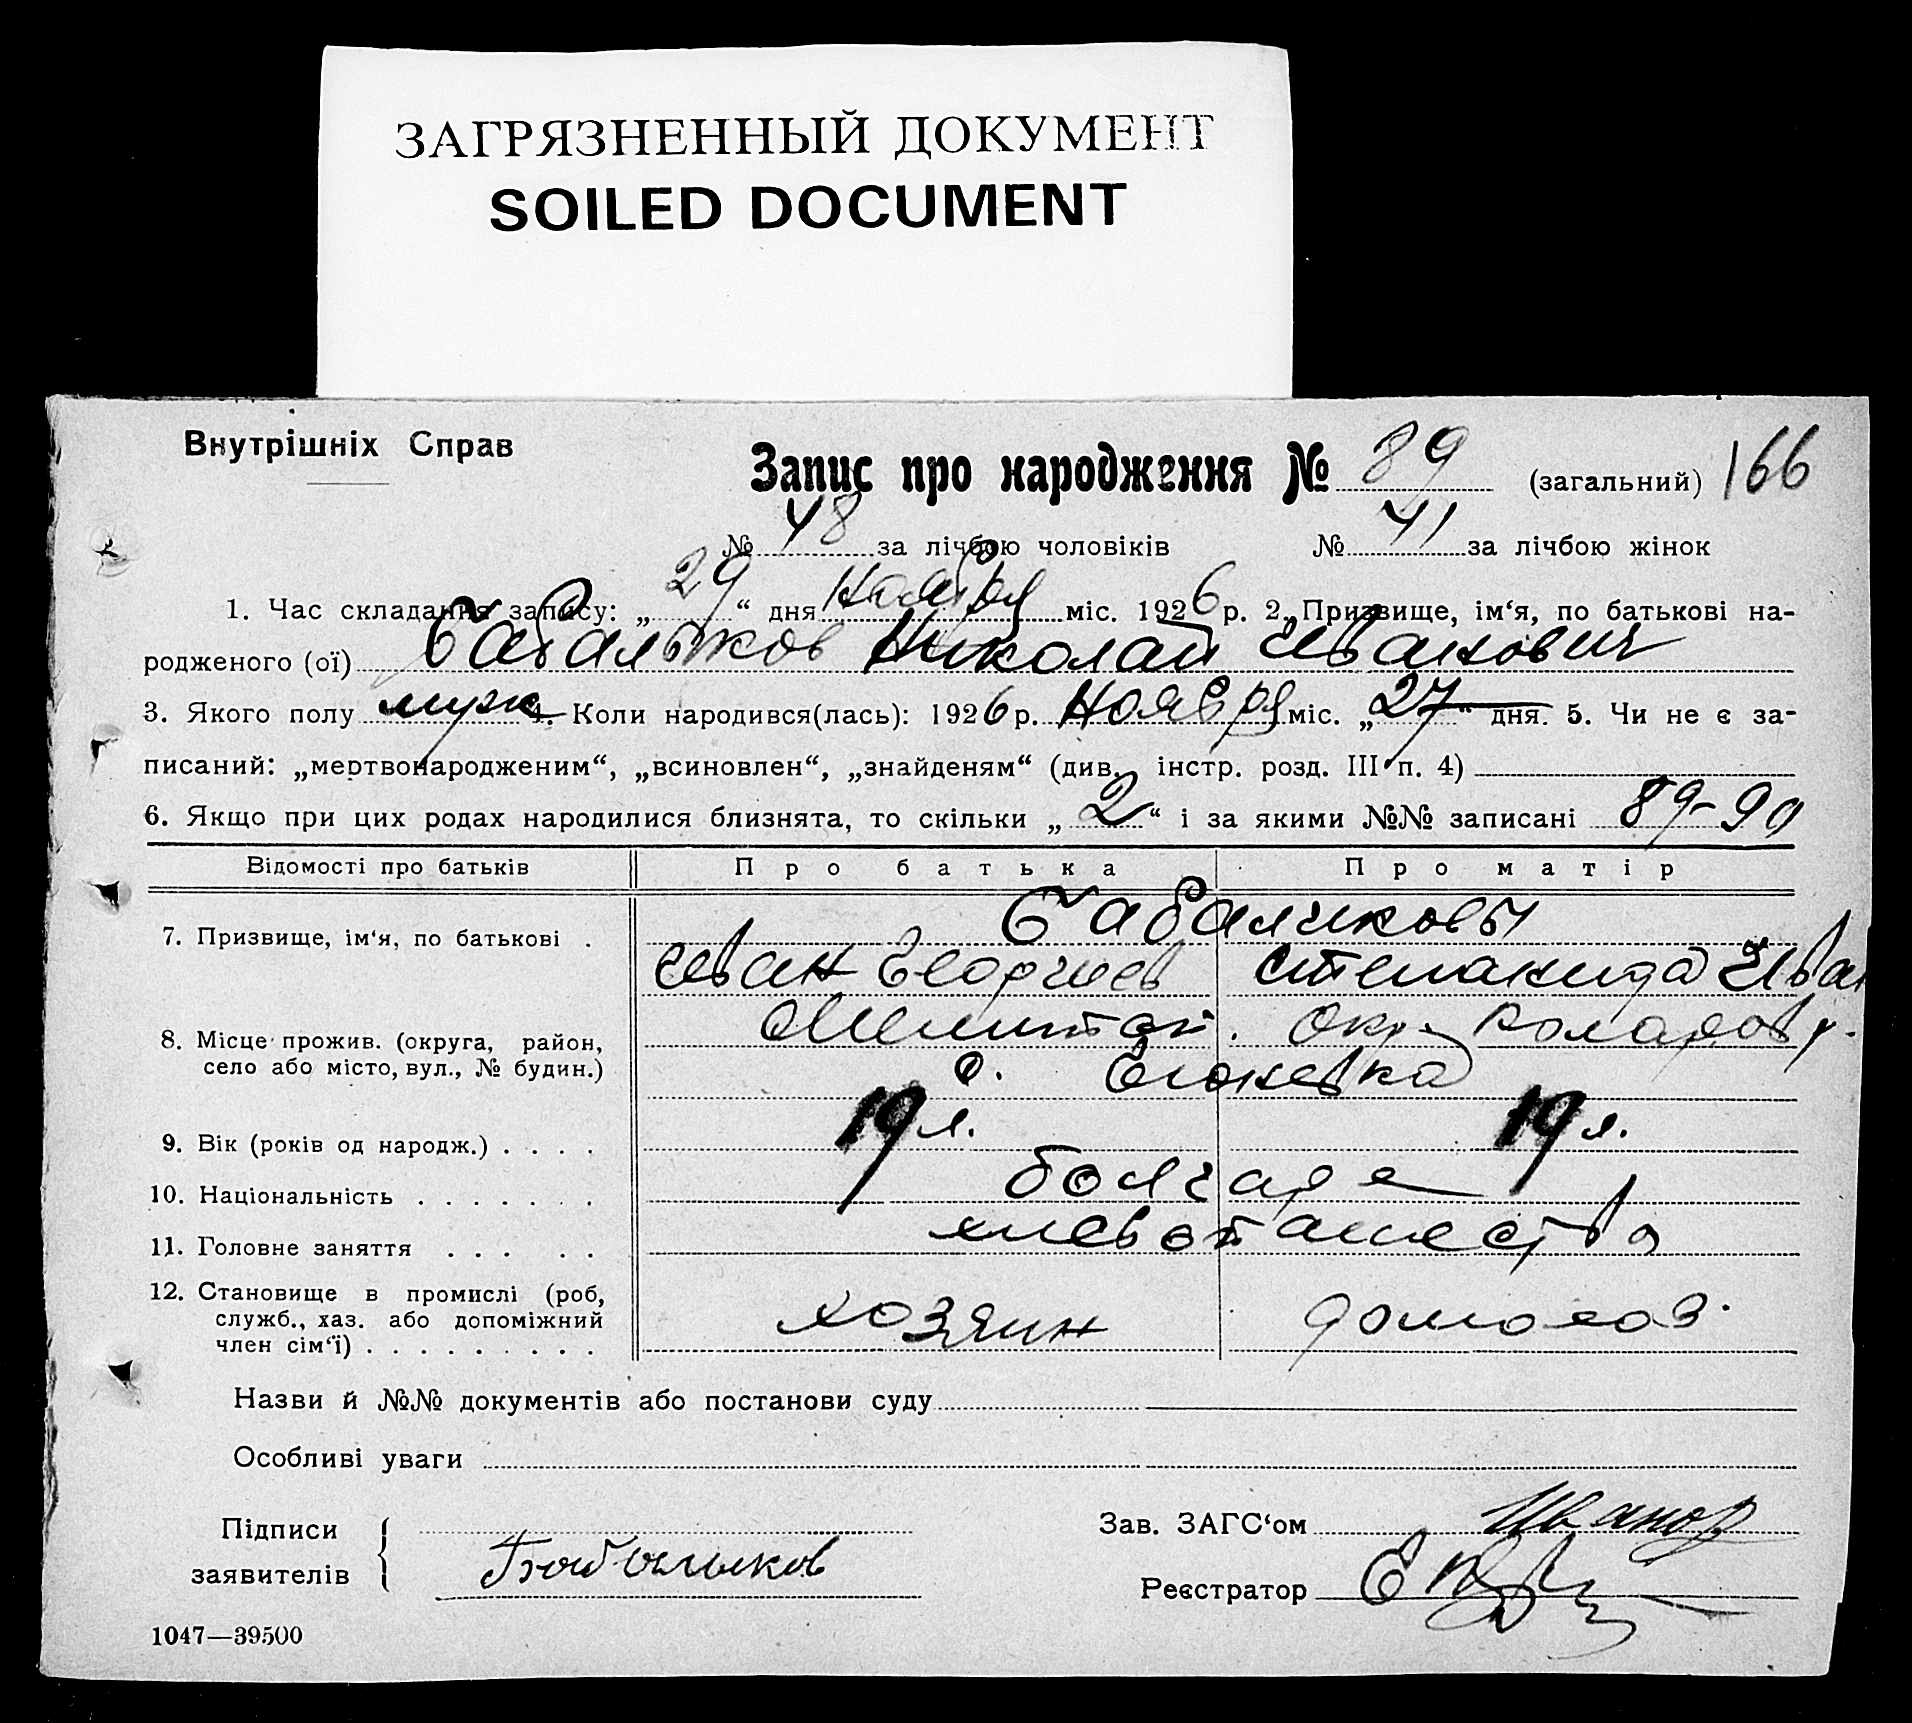 ЗАГРЯЗНЕННЫЙ ДОКУМЕНТ
SOILED DOCUMENT
Внутрішніх Справ
Запис про народження № 89 (загальний) 166
№ 48 за лічбою чоловіків № 41 за лічбою жінок
1. Час складання запису: „ 29 “ дня Ноября міс. 1926 р. 2. Призвище, ім‘я, по батькові на-
родженого (ої) Николай Иванович
3. Якого полу муж 4. Коли народився(лась): 1926 р. Ноября міс. „ 27 “ дня. 5. Чи не є за-
писаний: „мертвонародженим“, „всиновлен“, „знайденям“ (див. інстр. розд. III п. 4)
6. Якщо при цих родах народилися близнята, то скільки „ 2 “ і за якими №№ записані 89-90
Відомості про батьків Про батька Про матір
7. Призвище, ім‘я, по батькові .
Иван Георгиев
8. Місце прожив. (округа, район, Мелитоп. окр.
село або місто, вул., № будин.) с.
9. Вік (років од народж.) . . . . 19 л. 19 л.
10. Національність . . . . . . . болгаре
11. Головне заняття . . . . .
12. Становище в промислі (роб,
служб., хаз. або допоміжний хозяин домохоз.
член сім‘ї) . . . . . . . . .
Назви й №№ документів або постанови суду
Особливі уваги
Підписи Зав. ЗАГС‘ом Иванов
заявителів Реєстратор
1047—39500